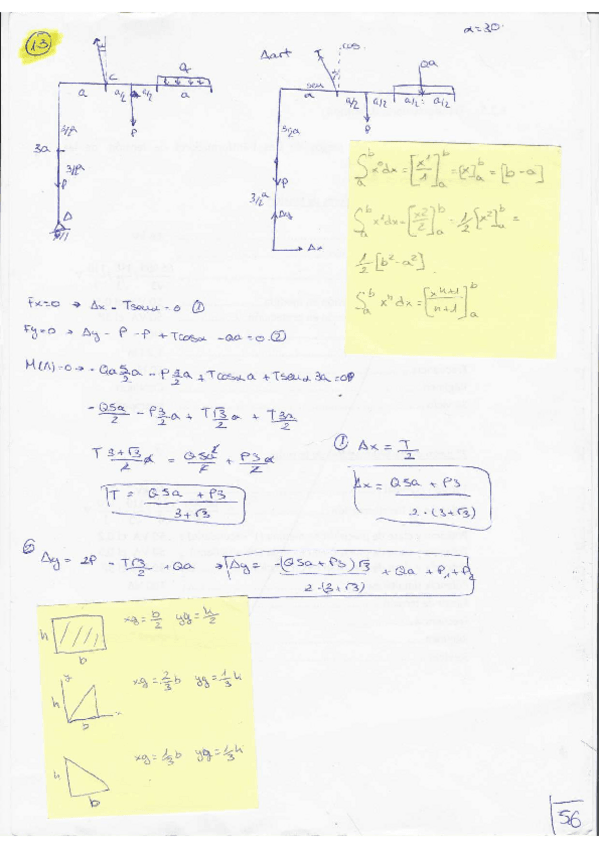 13
α=30º
C
Q
a
a/2
a/2
a
P
3/2a
3a
3/2a
P
A
Aart
cos
sen
Qa
a
a/2
a/2
a/2
a/2
P
P
3/2a
Ay
Ax
∫ₐᵇ x⁰dx = [x¹/1]ₐᵇ = [x]ₐᵇ = [b-a]
∫ₐᵇ x¹dx = [x²/2]ₐᵇ = 1/2 [x²]ₐᵇ =
1/2 [b²-a²]
∫ₐᵇ xⁿdx = [xⁿ⁺¹/n+1]ₐᵇ
Fx=0 → Ax - Tsenα = 0 ①
Fy=0 → Ay - P - P + Tcosα - Qa = 0 ②
M(A)=0 → -Qa 5/2 a - P 3/2 a + Tcosα a + Tsenα 3a = 0
-Q5a/2 - P 3/2 a + T√3/2 a + T 3a/2
T 3+√3/2 a = Q5a²/2 + P3/2 a
T = Q5a + P3 / 3+√3
① Ax = T/2
Ax = Q5a + P3 / 2·(3+√3)
② Ay = 2P - T√3/2 + Qa → Ay = -(Q5a+P3)√3 / 2·(3+√3) + Qa + P₁ + P₂
h
b
xg = b/2 yg = h/2
y
h
b
x
xg = 2/3 b yg = 1/3 h
h
b
xg = 1/3 b yg = 1/3 h
56